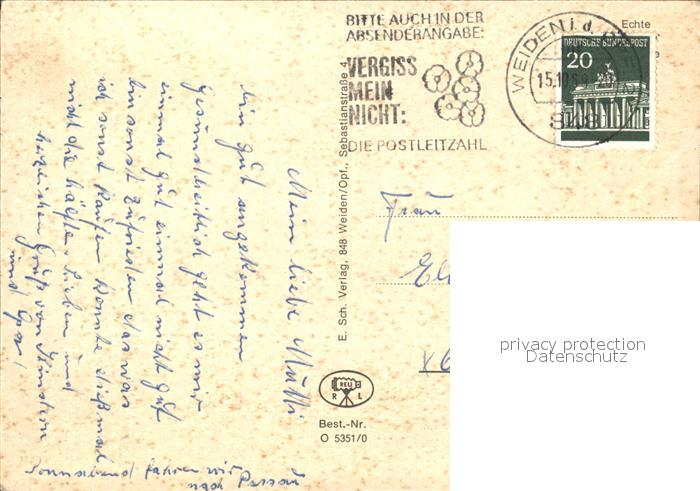 BITTE AUCH IN DER
ABSENDERANGABE:
VERGISS
MEIN
NICHT:
DIE POSTLEITZAHL
WEIDEN i. d.
15.10.69
848
Echte
DEUTSCHE BUNDESPOST
20
Meine liebe Mutti
bin gut angekommen
gesundheitlich geht es mir
einmal gut einmal nicht gut
bin sonst zufrieden das was
ich sonst kaufen konnte
nicht die hälfte. Lieben und
herzlichen Gruß von
und Opa,
Sonnabend fahren wir
nach Passau
E. Sch. Verlag, 848 Weiden/Opf., Sebastianstraße 4
Frau
REU
R L
Best.-Nr.
O 5351/0
privacy protection
Datenschutz